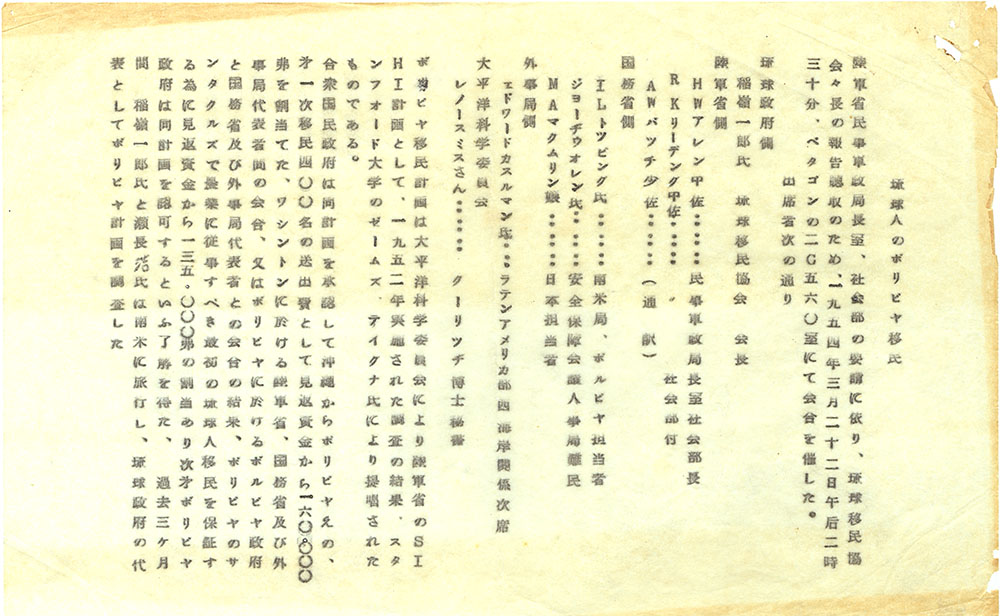 琉球人のボリビヤ移民
陸軍省民事軍政局長室、社会部の要請に依り、琉球移民協
会々長の報告聴取のため、一九五四年三月二十二日午后二時
三十分、ペタゴンの二G五六〇室にて会合を催した。
出席者次の通り
琉球政府側
稲嶺一郎氏 琉球移民協会 会長
陸軍省側
HWアレン中佐・・・・・・民事軍政局長室社会部長
RKリーデング中佐・・・・・・〃 社会部付
AWバッチ少佐・・・・・・(通 訳)
国務省側
ILトツピング氏・・・・・・南米局、ボルビヤ担当者
ジョーヂウオレン氏・・・・・・安全保障会議人事局難民
MAマクムリン嬢・・・・・・日本担当者
外事局側
エドワードカスルマン氏・・ラテンアメリカ部西海岸関係次席
大平洋科学委員会
レノースミスさん・・・・・・ クーリツヂ博士秘書
ボリビヤ移民計画は大平洋科学委員会により陸軍省のSI
HI計画として、一九五二年実施された調査の結果、スタ
ンフオード大学のゼームズ、テイグナ氏により提唱された
ものである。
合衆国民政府は同計画を承認して沖縄からボリビヤえの、
才一次移民四〇〇名の送出費として見返資金から一六〇。〇〇〇
弗を割当てた、ワシントンに於ける陸軍省、国務省及び外
事局代表者間の会合、又はボリビヤに於けるボルビヤ政府
と国務省及び外事局代表者との会合の結果、ボリビヤのサ
ンタクルズで農業に従事すべき最初の琉球人移民を保証す
る為に見返資金から一三五。〇〇〇弗の割当あり次才ボリビヤ
政府は同計画を認可するといふ了解を得た、 過去三ケ月
間 稲嶺一郎氏と瀬長浩氏は南米に旅行し、琉球政府の代
表としてボリビヤ計画を調査した